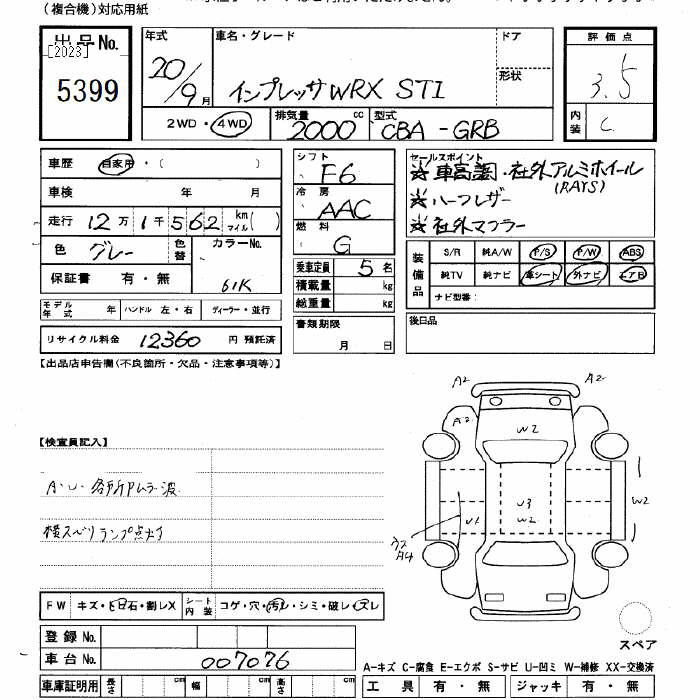 (複合機)対応用紙
出品No.
[2023]
5399
年式
20/9月
車名・グレード
インプレッサWRX STI
ドア
形状
2WD・4WD
排気量
2000cc
型式
CBA-GRB
評価点
3.5
内装
C
車歴 自家用・( )
車検 年 月
走行 12万1千562 km マイル( )
色 グレー 色替 カラーNo.
61K
保証書 有・無
モデル年式 年 ハンドル 左・右 ディーラー・並行
リサイクル料金 12360 円 預託済
シフト F6
冷房 AAC
燃料 G
乗車定員 5名
積載量 kg
総重量 kg
書類期限
月 日
セールスポイント
☆車高調・社外アルミホイール
(RAYS)
☆ハーフレザー
☆社外マフラー
装備品
S/R 純A/W P/S P/W ABS
純TV 純ナビ 革シート 外ナビ エアB
ナビ型番:
後日品
【出品店申告欄(不良箇所・欠品・注意事項等)】
【検査員記入】
A・U・各所Pムラ・波
横スベリランプ点灯
A2 A2
A2
W2
U3
W2
U1
W2
キズ
A4
スペア
FW キズ・ヒ石・割レX
シート内装 コゲ・穴・汚レ・シミ・破レ・スレ
登録No.
車台No. 007076
車庫証明用 長さ cm 幅 cm 高さ cm
A-キズ C-腐食 E-エクボ S-サビ U-凹ミ W-補修 XX-交換済
工具 有・無 ジャッキ 有・無